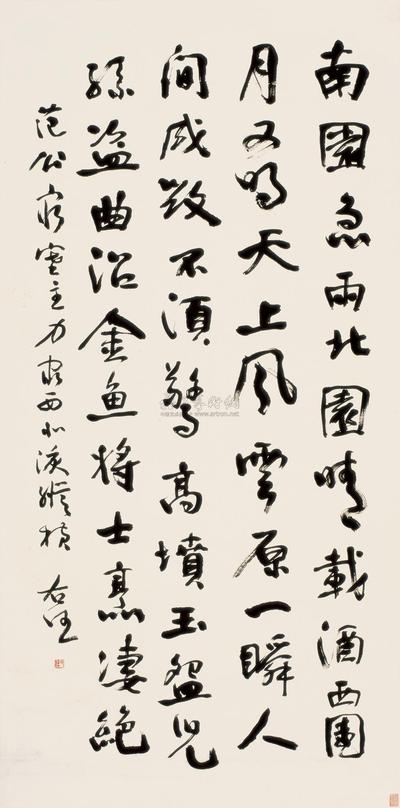 南園急雨北園晴載酒西園
月又明天上風雲原一瞬人
間成敗不須驚高墳玉盌兒
孫盜曲沼金魚將士烹凄絕
范公窮塞主力西北淚縱橫 右任
www.artron.net